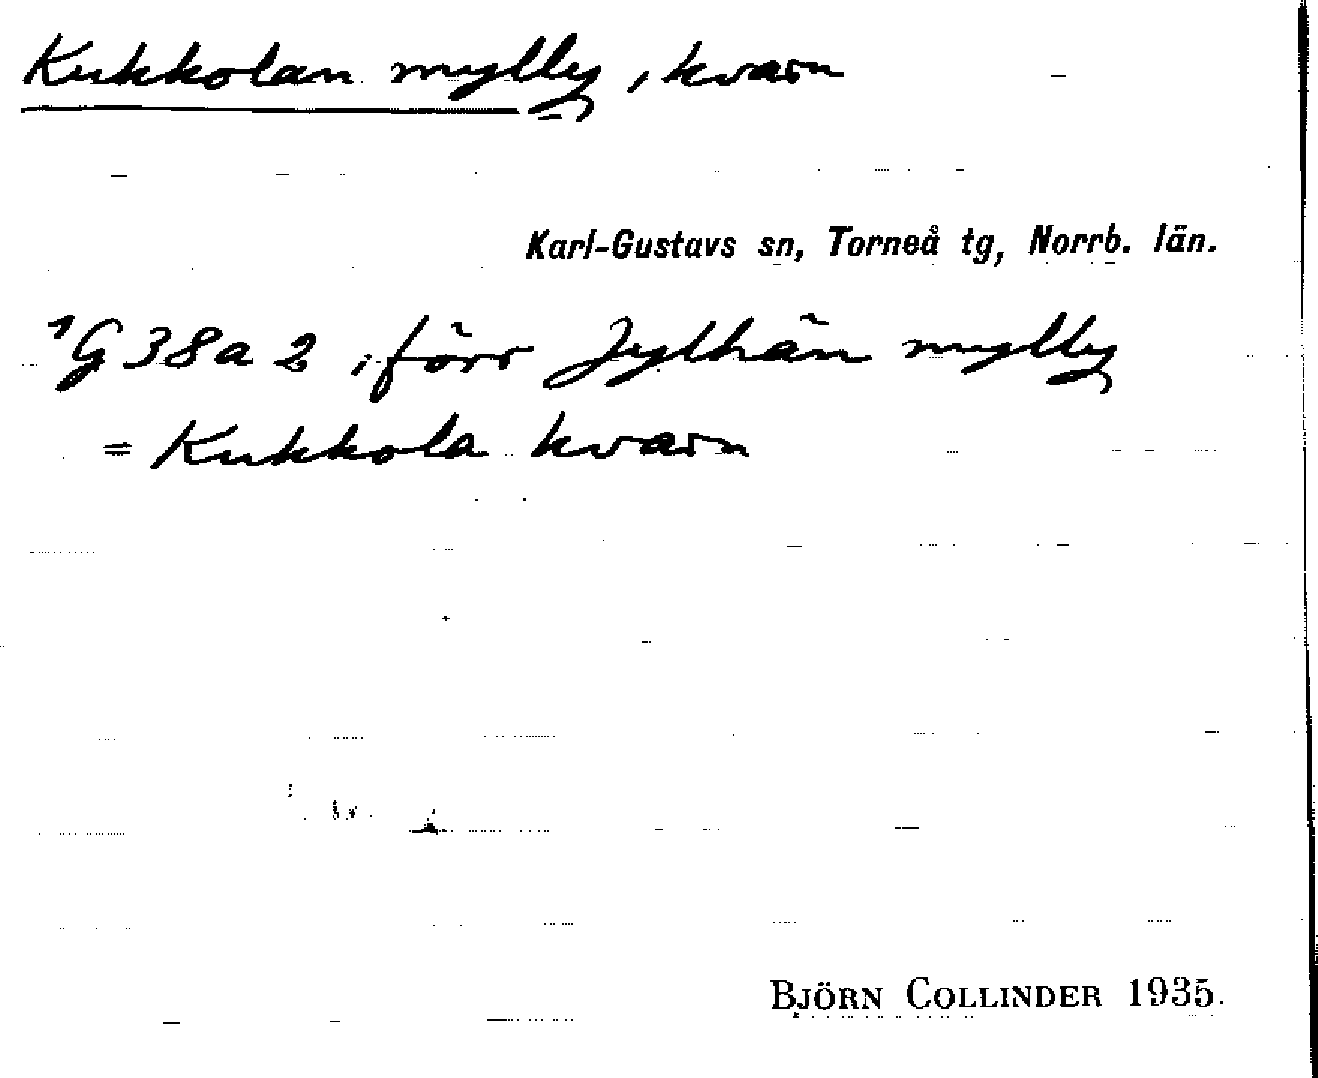 Kukkolan mylly, kvarn
Karl-Gustavs sn, Torneå tg, Norrb. län.
1G 38a 2, förr Jylhän mylly
= Kukkola kvarn
BJÖRN COLLINDER 1935.